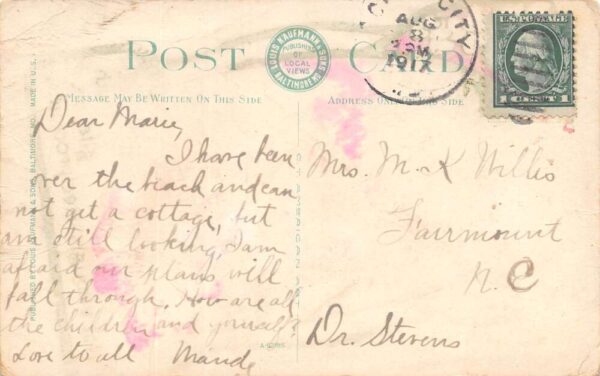 POST CARD
LOUIS KAUFMANN & SONS
PUBLISHERS
OF
LOCAL
VIEWS
BALTIMORE MD.
CITY
AUG
8
PM
1917
U.S. POSTAGE
1 CENT 1
MESSAGE MAY BE WRITTEN ON THIS SIDE
ADDRESS ONLY ON THIS SIDE
PUBLISHED BY LOUIS KAUFMANN & SONS, BALTIMORE, MD. MADE IN U.S.A.
Dear Marie,
I have been
over the beach and can
not get a cottage, but
am still looking, I am
afraid our plans will
fall through. How are all
the children and yourself?
Love to all Maude
Mrs. M. K Willis
Fairmount
N. C
Dr. Stevens